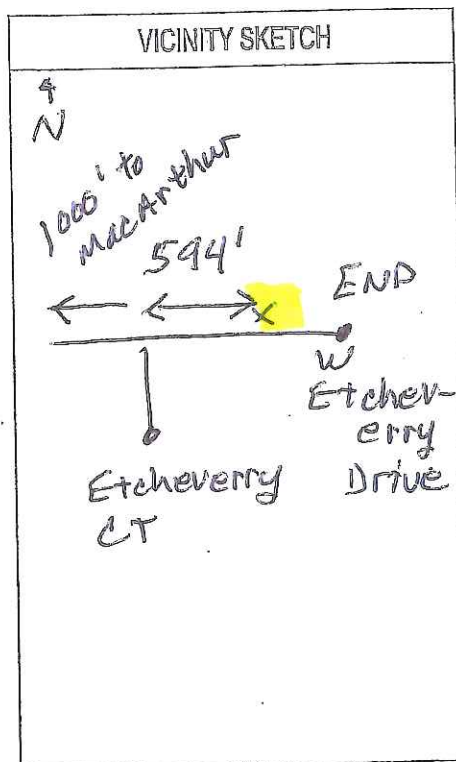 VICINITY SKETCH
N
1000' to
MacArthur
594'
X
END
W
Etchev-
erry
Drive
Etcheverry
CT